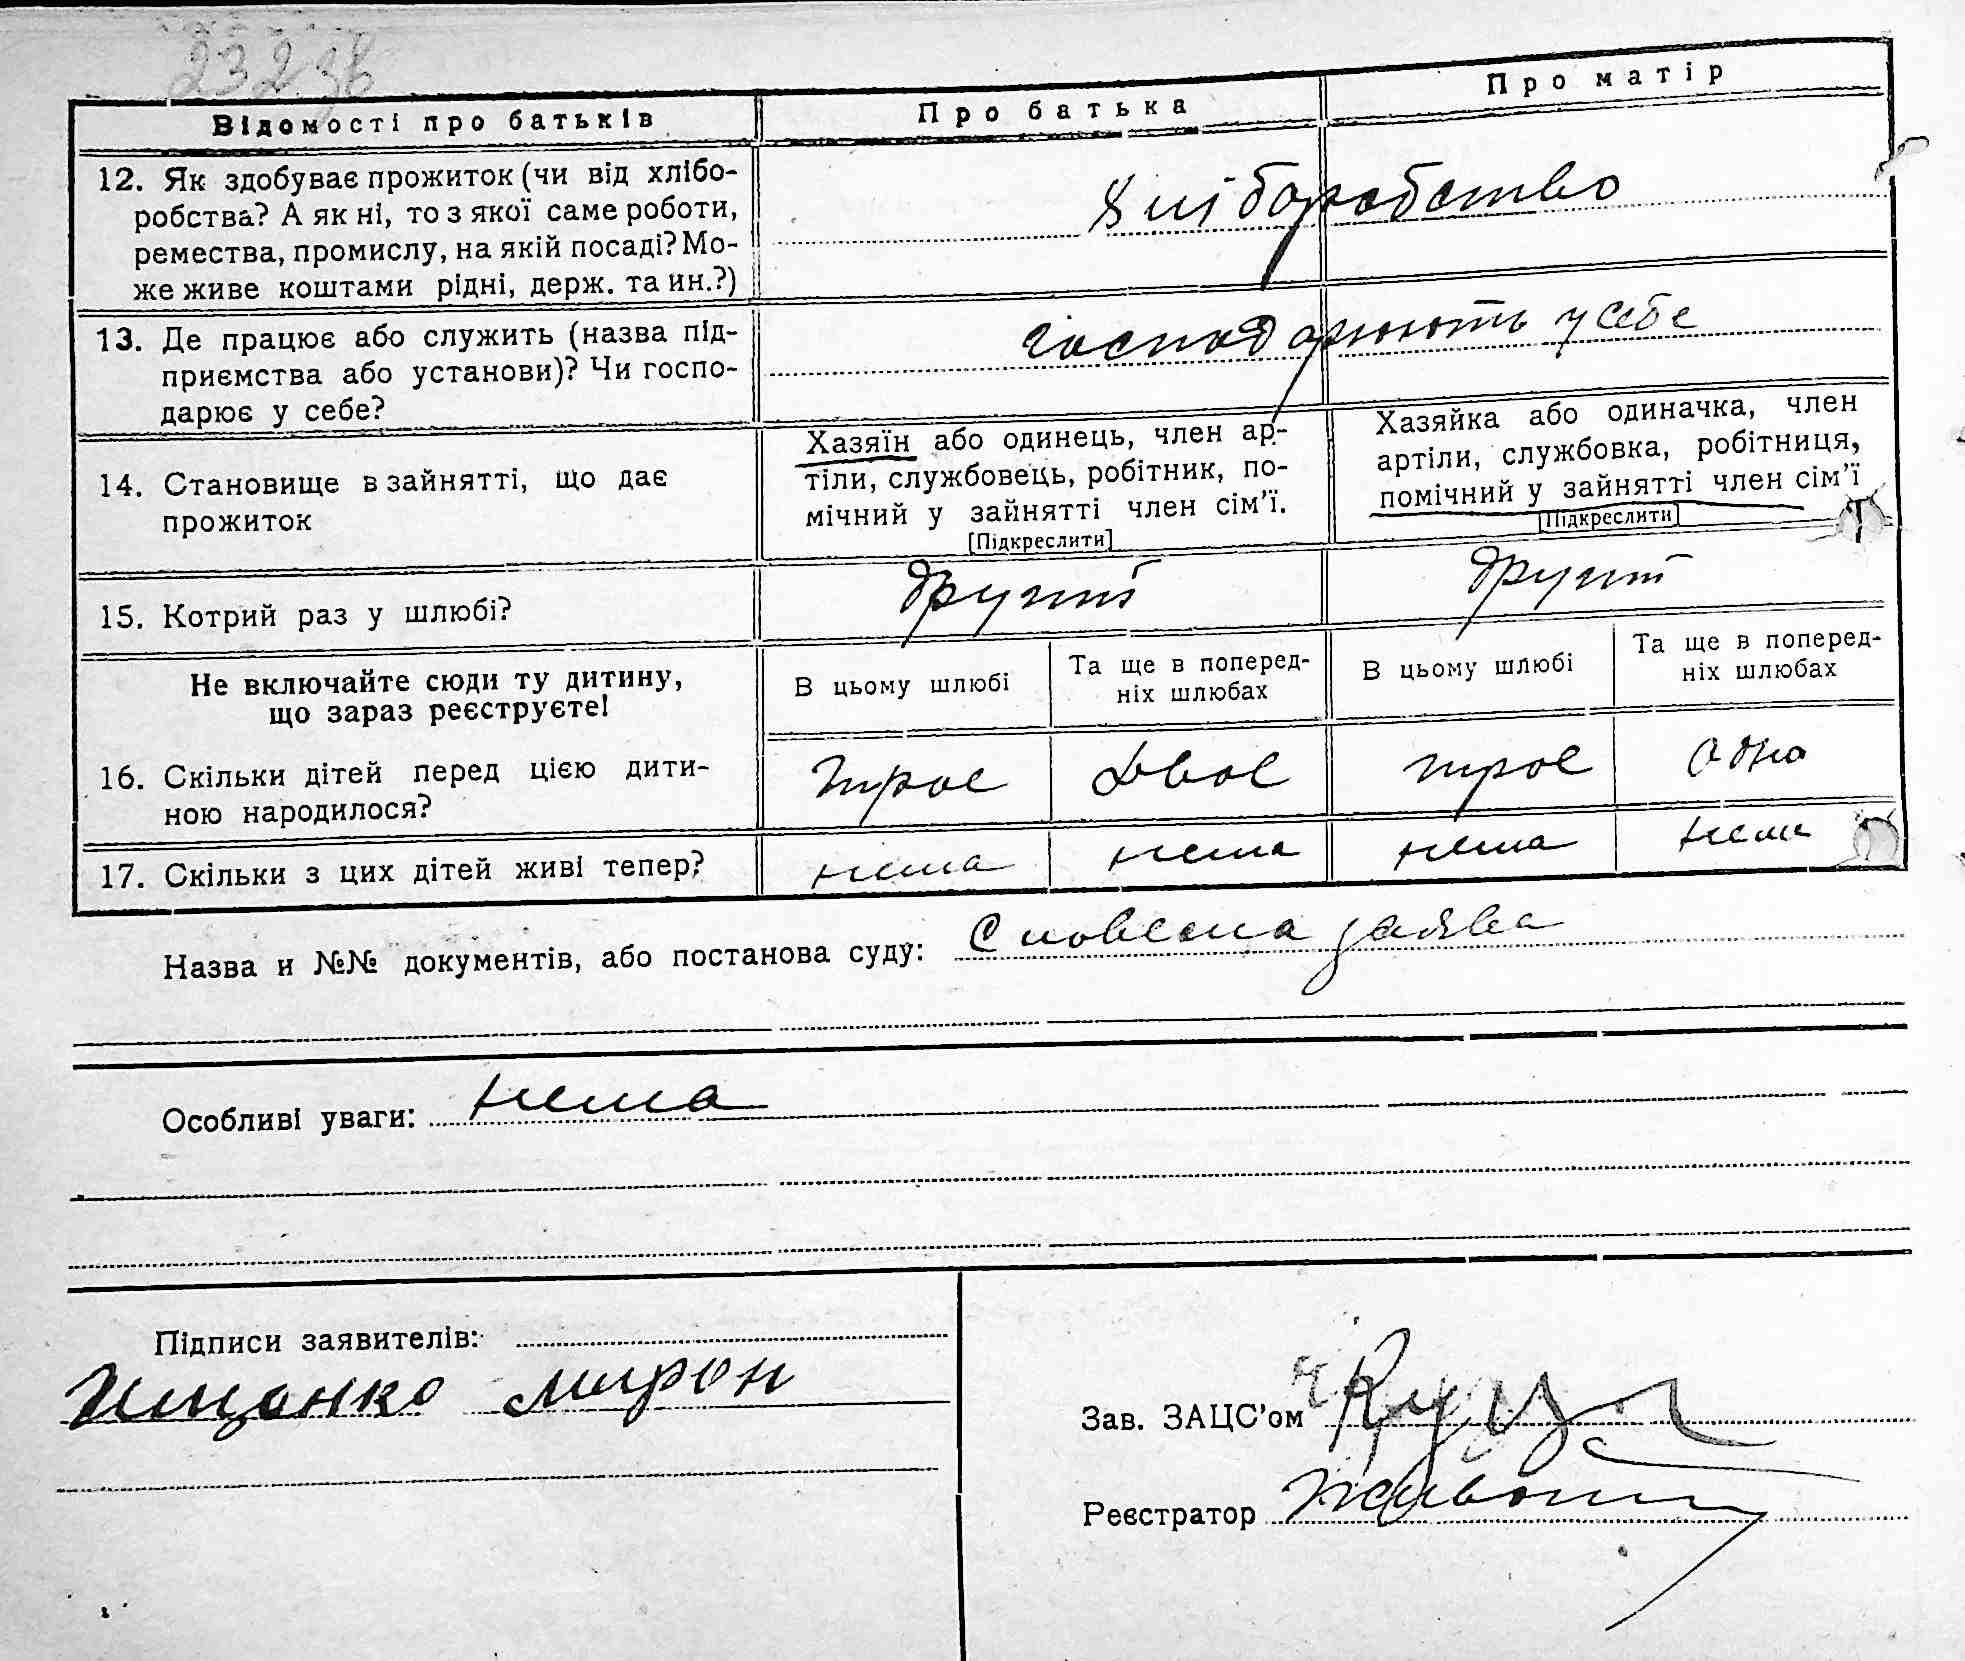 232 зв
Відомості про батьків
Про батька
Про матір
12. Як здобуває прожиток (чи від хлібо-
робства? А як ні, то з якої саме роботи,
ремества, промислу, на якій посаді? Мо-
же живе коштами рідні, держ. та ин.?)
Хліборобство
13. Де працює або служить (назва під-
приємства або установи)? Чи госпо-
дарює у себе?
господарюють у себе
14. Становище в зайнятті, що дає
прожиток
Хазяїн або одинець, член ар-
тіли, службовець, робітник, по-
мічний у зайнятті член сім'ї.
[Підкреслити]
Хазяйка або одиначка, член
артіли, службовка, робітниця,
помічний у зайнятті член сім'ї
[Підкреслити]
15. Котрий раз у шлюбі?
другий
другий
Не включайте сюди ту дитину,
що зараз реєструєте!
В цьому шлюбі
Та ще в поперед-
ніх шлюбах
В цьому шлюбі
Та ще в поперед-
ніх шлюбах
16. Скільки дітей перед цією дити-
ною народилося?
трое
двое
трое
одно
17. Скільки з цих дітей живі тепер?
нема
нема
нема
нема
Назва и №№ документів, або постанова суду: Словесна заява
Особливі уваги: нема
Підписи заявителів:
Ищенко Мирон
Зав. ЗАЦС'ом
Реєстратор